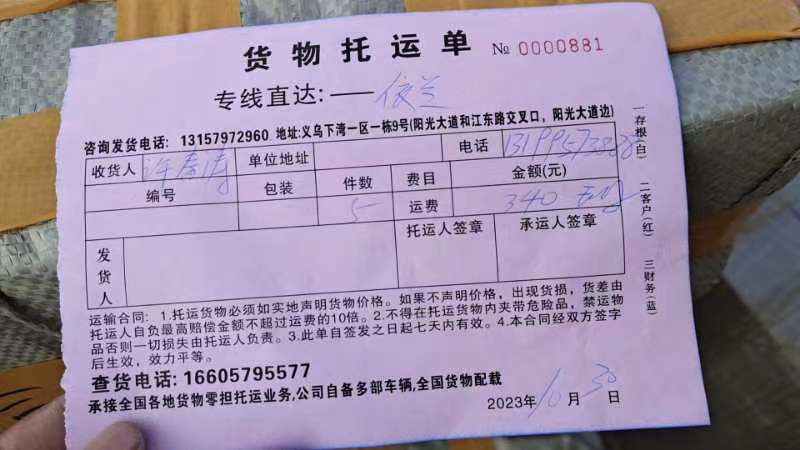 货物托运单 № 0000881
专线直达:—— 依兰
咨询发货电话: 13157972960 地址:义乌下湾一区一栋9号(阳光大道和江东路交叉口，阳光大道边)
收货人 单位地址 电话
编号 包装 件数 费目 金额(元)
5 运费 340
发货人 托运人签章 承运人签章
运输合同: 1.托运货物必须如实地声明货物价格。如果不声明价格，出现货损，货差由
托运人自负最高赔偿金额不超过运费的10倍。2.不得在托运货物内夹带危险品，禁运物
品否则一切损失由托运人负责。3.此单自签发之日起七天内有效。4.本合同经双方签字
后生效，效力平等。
查货电话: 16605795577
承接全国各地货物零担托运业务,公司自备多部车辆,全国货物配载
2023年10月30日
一存根(白) 二客户(红) 三财务(蓝)